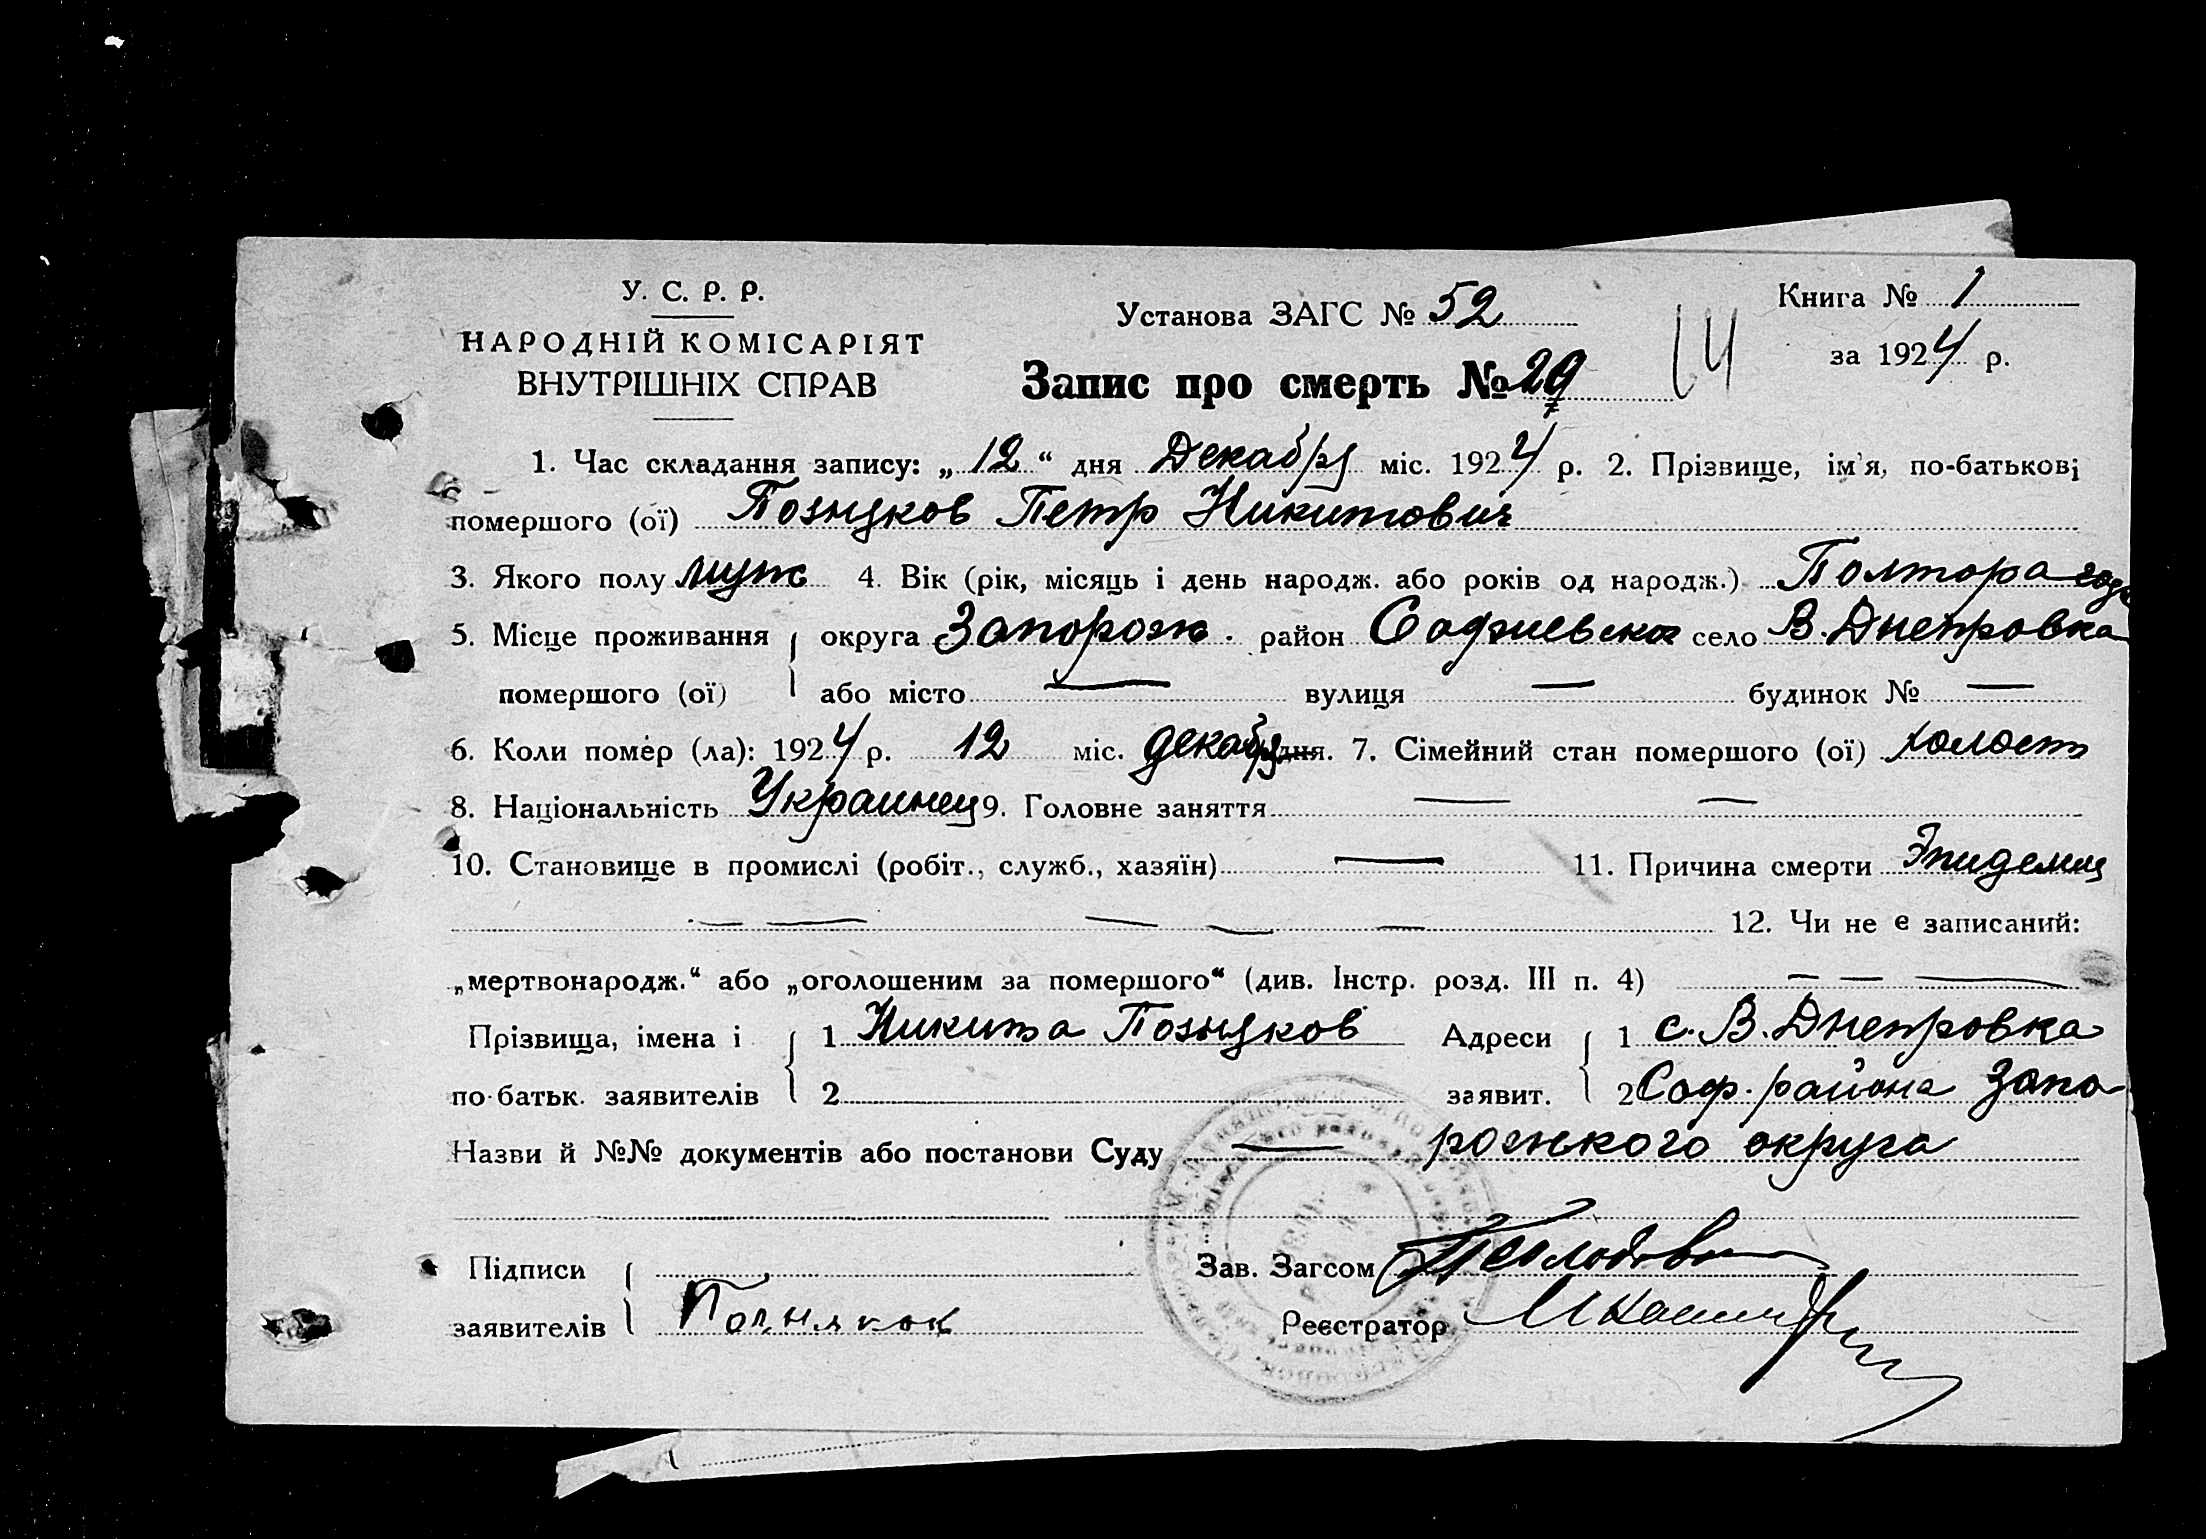 У. С. Р. Р.
НАРОДНІЙ КОМІСАРІЯТ
ВНУТРІШНІХ СПРАВ
Установа ЗАГС № 52
Запис про смерть № 29
14
Книга № 1
за 1924 р.
1. Час складання запису: „12“ дня Декабря міс. 1924 р. 2. Прізвище, ім’я, по-батькові
помершого (ої) Позняков Петр Никитович
3. Якого полу муж 4. Вік (рік, місяць і день народж. або років од народж.) Полтора года
5. Місце проживання округа Запорож. район Софиевский село В. Днепровка
помершого (ої) або місто — вулиця — будинок № —
6. Коли помер (ла): 1924 р. 12 міс. декабря дня. 7. Сімейний стан помершого (ої) холост
8. Національність Украинец 9. Головне заняття — —
10. Становище в промислі (робіт., служб., хазяїн) — 11. Причина смерти Эпидемия
12. Чи не є записаний:
„мертвонародж.“ або „оголошеним за помершого“ (див. Інстр. розд. III п. 4) — — —
Прізвища, імена і 1 Никита Позняков Адреси 1 с. В. Днепровка
по-батьк. заявителів 2 заявит. 2 Соф. района Запо-
Назви й №№ документів або постанови Суду — рожского округа
Підписи Зав. Загсом
заявителів Позняков Реєстратор